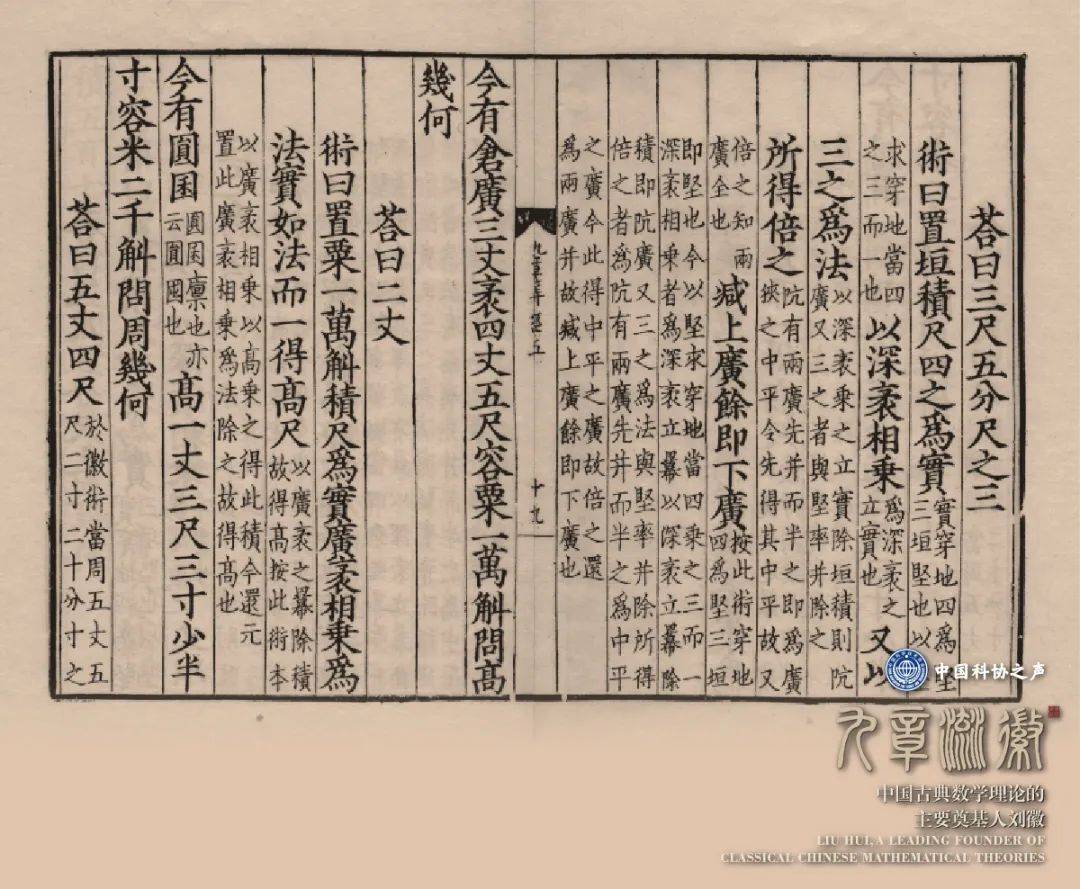 荅曰三尺五分尺之三
術曰置垣積尺四之爲實實穿地四爲堅三垣堅也以
求穿地當四之三而一也以深袤相乗爲深袤之立實也又以
三之爲法以深袤乗之立實除垣積則阬廣又三之者與堅率并除之
所得倍之阬有兩廣先并而半之即爲廣狹之中平令先得其中平故又
倍之知兩廣全也減上廣餘即下廣按此術穿地四爲堅三垣
即堅也今以堅求穿地當四乗之三而一深袤相乗者爲深袤立冪以深袤立冪除
積即阬廣又三之爲法與堅率并除所得倍之者爲阬有兩廣先并而半之爲中平
之廣今此得中平之廣故倍之還爲兩廣并故減上廣餘即下廣也
九章算經五 十九
今有倉廣三丈袤四丈五尺容粟一萬斛問髙
幾何
荅曰二丈
術曰置粟一萬斛積尺爲實廣袤相乗爲
法實如法而一得髙尺以廣袤之冪除積故得髙按此術本
以廣袤相乗以髙乗之得此積今還元置此廣袤相乗爲法除之故得髙也
今有圓囷圓囷廪也亦云圓囤也髙一丈三尺三寸少半
寸容米二千斛問周幾何
荅曰五丈四尺於徽術當周五丈五尺二寸二十分寸之
中国科协之声
九章流徽
中国古典数学理论的
主要奠基人刘徽
LIU HUI,A LEADING FOUNDER OF
CLASSICAL CHINESE MATHEMATICAL THEORIES